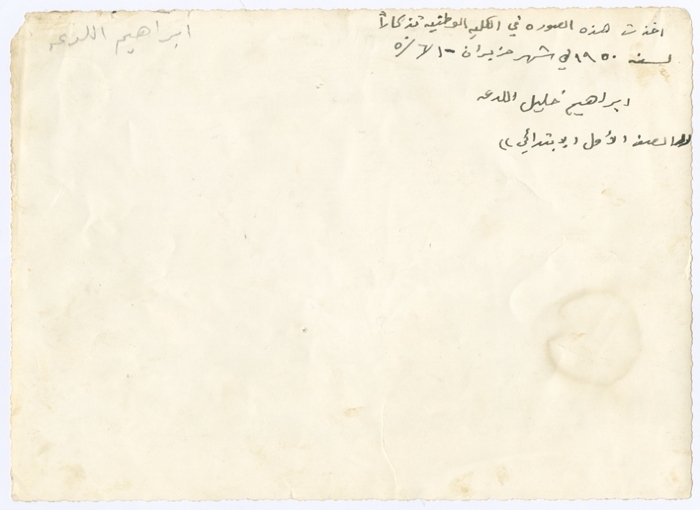 ابراهيم اللدعه
اخذت هذه الصوره في الكليه الوطنيه تذكاراً
لسنه ١٩٥٠ في شهر حزيران
ابراهيم خليل اللدعه
الصف الأول الابتدائي